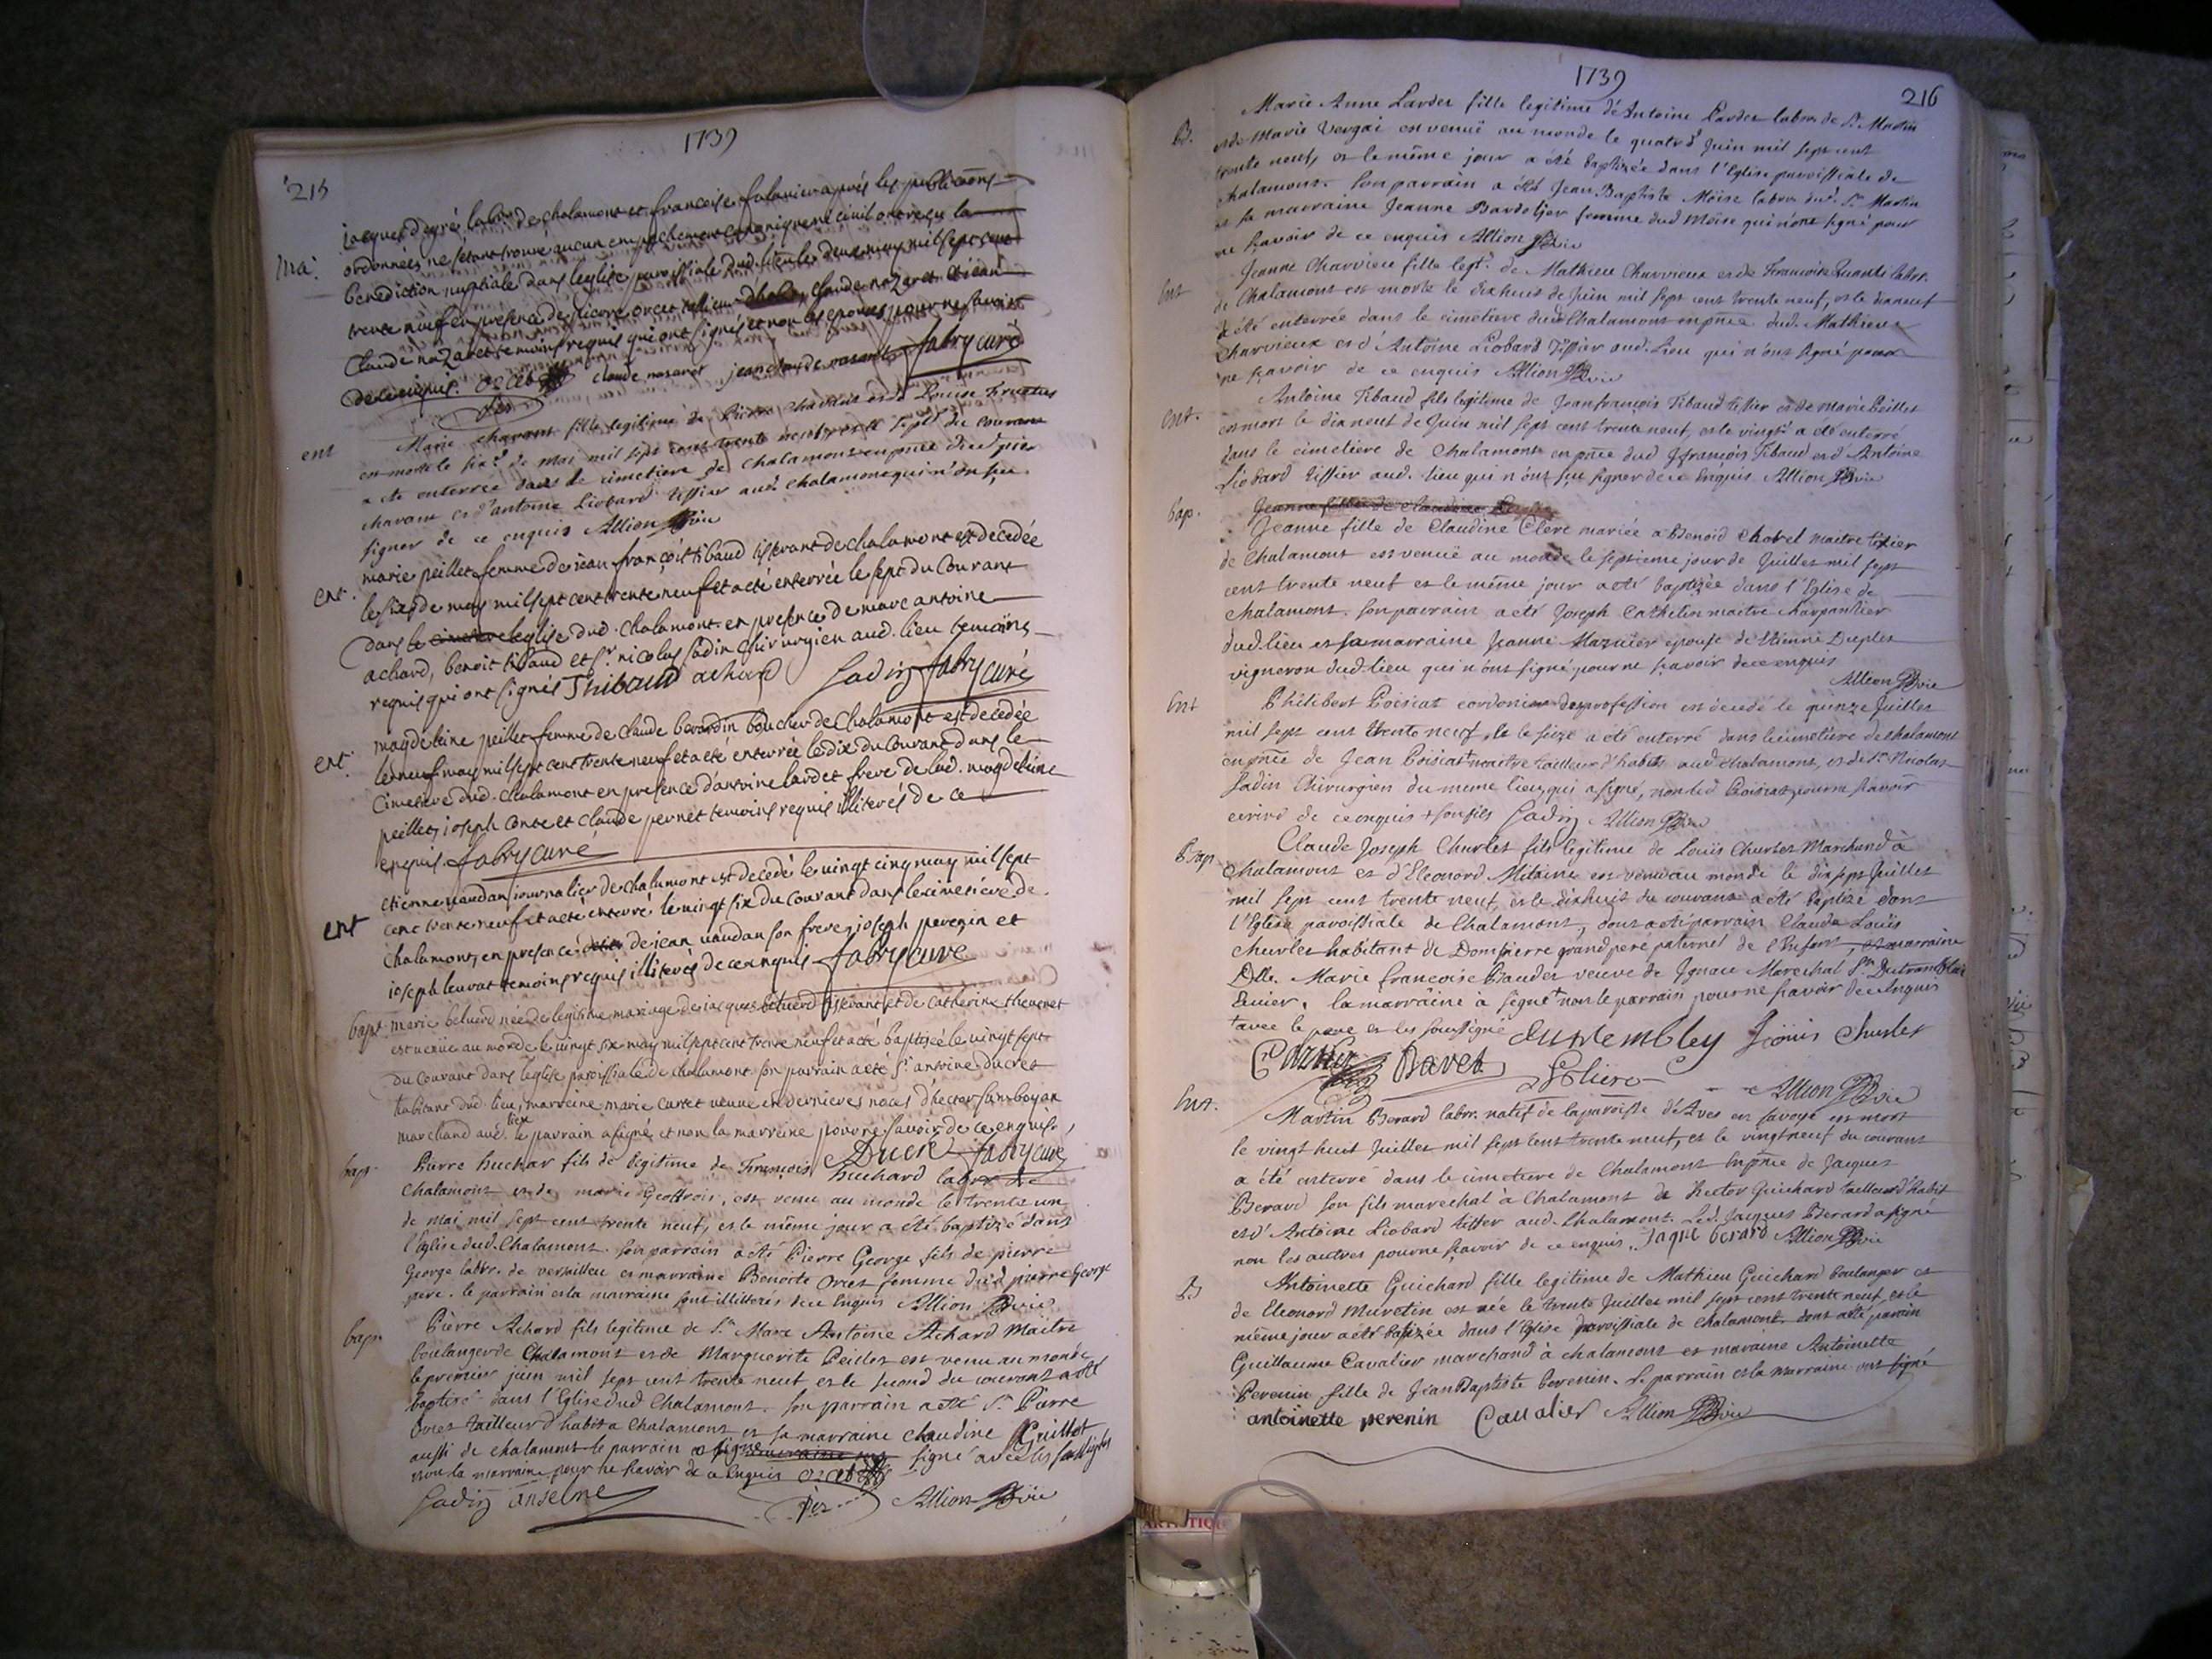 1739
215
ma.
jacques degré labr. de chalamont et françoise falavier après les publications
ordonnées ne s'étant trouvé aucun empechement canonique ni civil ont reçu la
benediction nuptiale dans leglise paroissiale dud. lieu le deux may mil sept cent
trente neuf en presence de pierre orcet tailleur d'habits, claude nazaret et jean
claude nazaret temoins requis qui ont signés et non les epoux pour ne savoir
de ce enquis. orcet claude nazaret jean claude nazaret fabry curé
ent
Marie Chavant fille legitime de Pierre Chavant et de Louise
est morte le six de mai mil sept cent trente neuf et le sept du courant
a eté enterrée dans le cimetiere de Chalamont en pnce dud. pierre
chavant et d'antoine Liobard tissier aud. Chalamont qui n'ont sçu
signer de ce enquis Allion vic
ent.
marie peillet femme de jean françois tibaud tisserant de chalamont est decedée
le six de may mil sept cent trente neuf et a eté enterrée le sept du courant
dans le cimetiere leglise dud. chalamont en presence de marc antoine
achard, benoit tibaud et sr nicolas sadin chirurgien aud. lieu temoins
requis qui ont signés Thibaud achard Sadin fabry curé
ent.
magdeleine peillet femme de claude berardin boucher de chalamont est decedée
le neuf may mil sept cent trente neuf et a eté enterrée le dix du courant dans le
cimetiere dud. chalamont en presence d'antoine lardet frere de lad. magdeleine
peillet, joseph conte et claude pernet temoins requis illiterés de ce
enquis fabry curé
ent
etienne vaudan journalier de chalamont est decedé le vingt cinq may mil sept
cent trente neuf et a eté enterré le vingt six du courant dans le cimetiere de
chalamont, en presence de jean vaudan son frere, joseph perenin et
joseph levrat temoins requis illiterés de ce enquis fabry curé
bapt
marie beluerd née de legitime mariage de jacques beluerd tisserant et de catherine thevenet
est venüe au monde le vingt six may mil sept cent trente neuf et a eté baptisée le vingt sept
du courant dans leglise paroissiale de chalamont son parrain a eté sr antoine ducret
habitant dud. lieu, marreine marie curtet veuve en dernieres noces d'hector
marchand aud. lieu le parrain a signé et non la marreine pour ne savoir de ce enquis,
Ducré fabry curé
bap.
Pierre huchar fils de legitime de François huchard labor de
Chalamont et de marie Geoffroi, est venu au monde le trente un
de mai mil sept cent trente neuf, et le même jour a été baptizé dans
l'Eglise dud. Chalamont. son parrain a eté Pierre George fils de pierre
George labor. de versailleu et marraine Benoite Orcet femme dud pierre George
pere. le parrain et la marraine sont illiterés de ce Enquis Allion vic
bap.
Pierre Achard fils legitime de Sr Marc Antoine Achard Maitre
boulanger de Chalamont et de Marguerite Peillet est venu au monde
le premier juin mil sept cent trente neuf et le second du courant a eté
baptizé dans l'Eglise dud Chalamont. son parrain a eté Sr Pierre
Orcet tailleur d'habit a Chalamont et sa marraine claudine Guillot
aussi de chalamont le parrain a signé signé avec les soussignés
non la marraine pour ne savoir de ce Enquis orcet
Sadin anselme Allion vic
1739
216
B.
Marie Anne Lardet fille legitime d'Antoine Lardet labor. de St. Martin
et de Marie Vergai est venuë au monde le quatre Juin mil sept cent
trente neuf, et le même jour a été baptizée dans l'Eglise paroissiale de
Chalamont. son parrain a été Jean Baptiste Moise labor. dud. St. Martin
et sa marraine Jeanne Bardolier femme dud Moise qui n'ont signé pour
ne savoir de ce enquis Allion vic
Ent
Jeanne Charvieu fille legt. de Mathieu Charvieux et de Françoise labor.
de Chalamont est morte le dixhuit de Juin mil sept cent trente neuf, et le dixneuf
a été enterrée dans le cimetiere dud Chalamont en pnce dud. Mathieu
Charvieux et d'Antoine Liobard Tissier aud. Lieu qui n'ont signé pour
ne savoir de ce enquis Allion vic
Ent.
Antoine Tibaud fils legitime de Jean françois Tibaud tissier et de Marie Peillet
est mort le dixneuf de Juin mil sept cent trente neuf, et le vingt a été enterré
dans le cimetiere de Chalamont en pnce dud Jfrançois Tibaud et d'Antoine
Liobard tissier aud. lieu qui n'ont sçu signer de ce Enquis. Allion vic
bap.
Jeanne fille de Claudine
Jeanne fille de Claudine Clerc mariée a Benoid Chorel maitre tissier
de Chalamont est venuë au monde le septieme jour de Juillet mil sept
cent trente neuf et le même jour a eté baptizée dans l'Eglise de
Chalamont. son parrain a eté Joseph Cathelin maitre charpantier
dud. lieu et sa marraine Jeanne Mazuier epouse de Etienne Duples
vigneron dud. lieu qui n'ont signé pour ne savoir de ce enquis
Allion vic
Ent
Philibert Poisiat cordonier de profession est decedé le quinze Juillet
mil sept cent trente neuf, et le seize a été enterré dans le cimetiere de chalamont
en pnce de Jean Poisiat maitre tailleur d'habits aud. Chalamont, et de Sr Nicolas
Sadin Chirurgien du meme lieu, qui a signé, non led Poisiat pour ne savoir
ecrire de ce enquis + son fils Sadin Allion vic
Bap.
Claude Joseph Churlet fils legitime de Loüis Churlet Marchand à
Chalamont et d'Eleonord Mitaine est venu au monde le dix sept Juillet
mil sept cent trente neuf, et le dixhuit du courant a eté baptizé dans
l'Eglise paroissiale de Chalamont, dont a eté parrain Claude Loüis
Churlet habitant de Dompierre grand pere paternel de l'Enfant, et marraine
Dlle. Marie françoise Baudet veuve de Ignace Marechal Sr
Ecuier. la marraine a signé + non le parrain pour ne savoir de ce Enquis
+ avec le pere et les soussignés dutrembley Loüis Churlet
Ravet Allion vic
Ent.
Martin Berard labor. natif de la paroisse d'Aves en savoye est mort
le vingt huit Juillet mil sept cent trente neuf, et le vingt neuf du courant
a été enterré dans le cimetiere de Chalamont en pnce de Jacques
Berard son fils marechal à Chalamont de hector Guichard tailleur d'habit
et d'Antoine Liobard tissier aud. Chalamont. Led. Jacques Berard a signé
non les autres pour ne sçavoir de ce enquis. Jaque berard Allion vic
B
Antoinette Guichard fille legitime de Mathieu Guichard boulanger et
de Eleonord Muretin est née le trente Juillet mil sept cent trente neuf, et le
même jour a été batizée dans l'Eglise paroissiale de Chalamont. dont a eté parrain
Guillaume Cavalier marchand à chalamont et maraine Antoinette
Perenin fille de Jean Baptiste Perenin. le parrain et la marraine ont signé
antoinette perenin Cavalier Allion vic
ARTISTIQUE